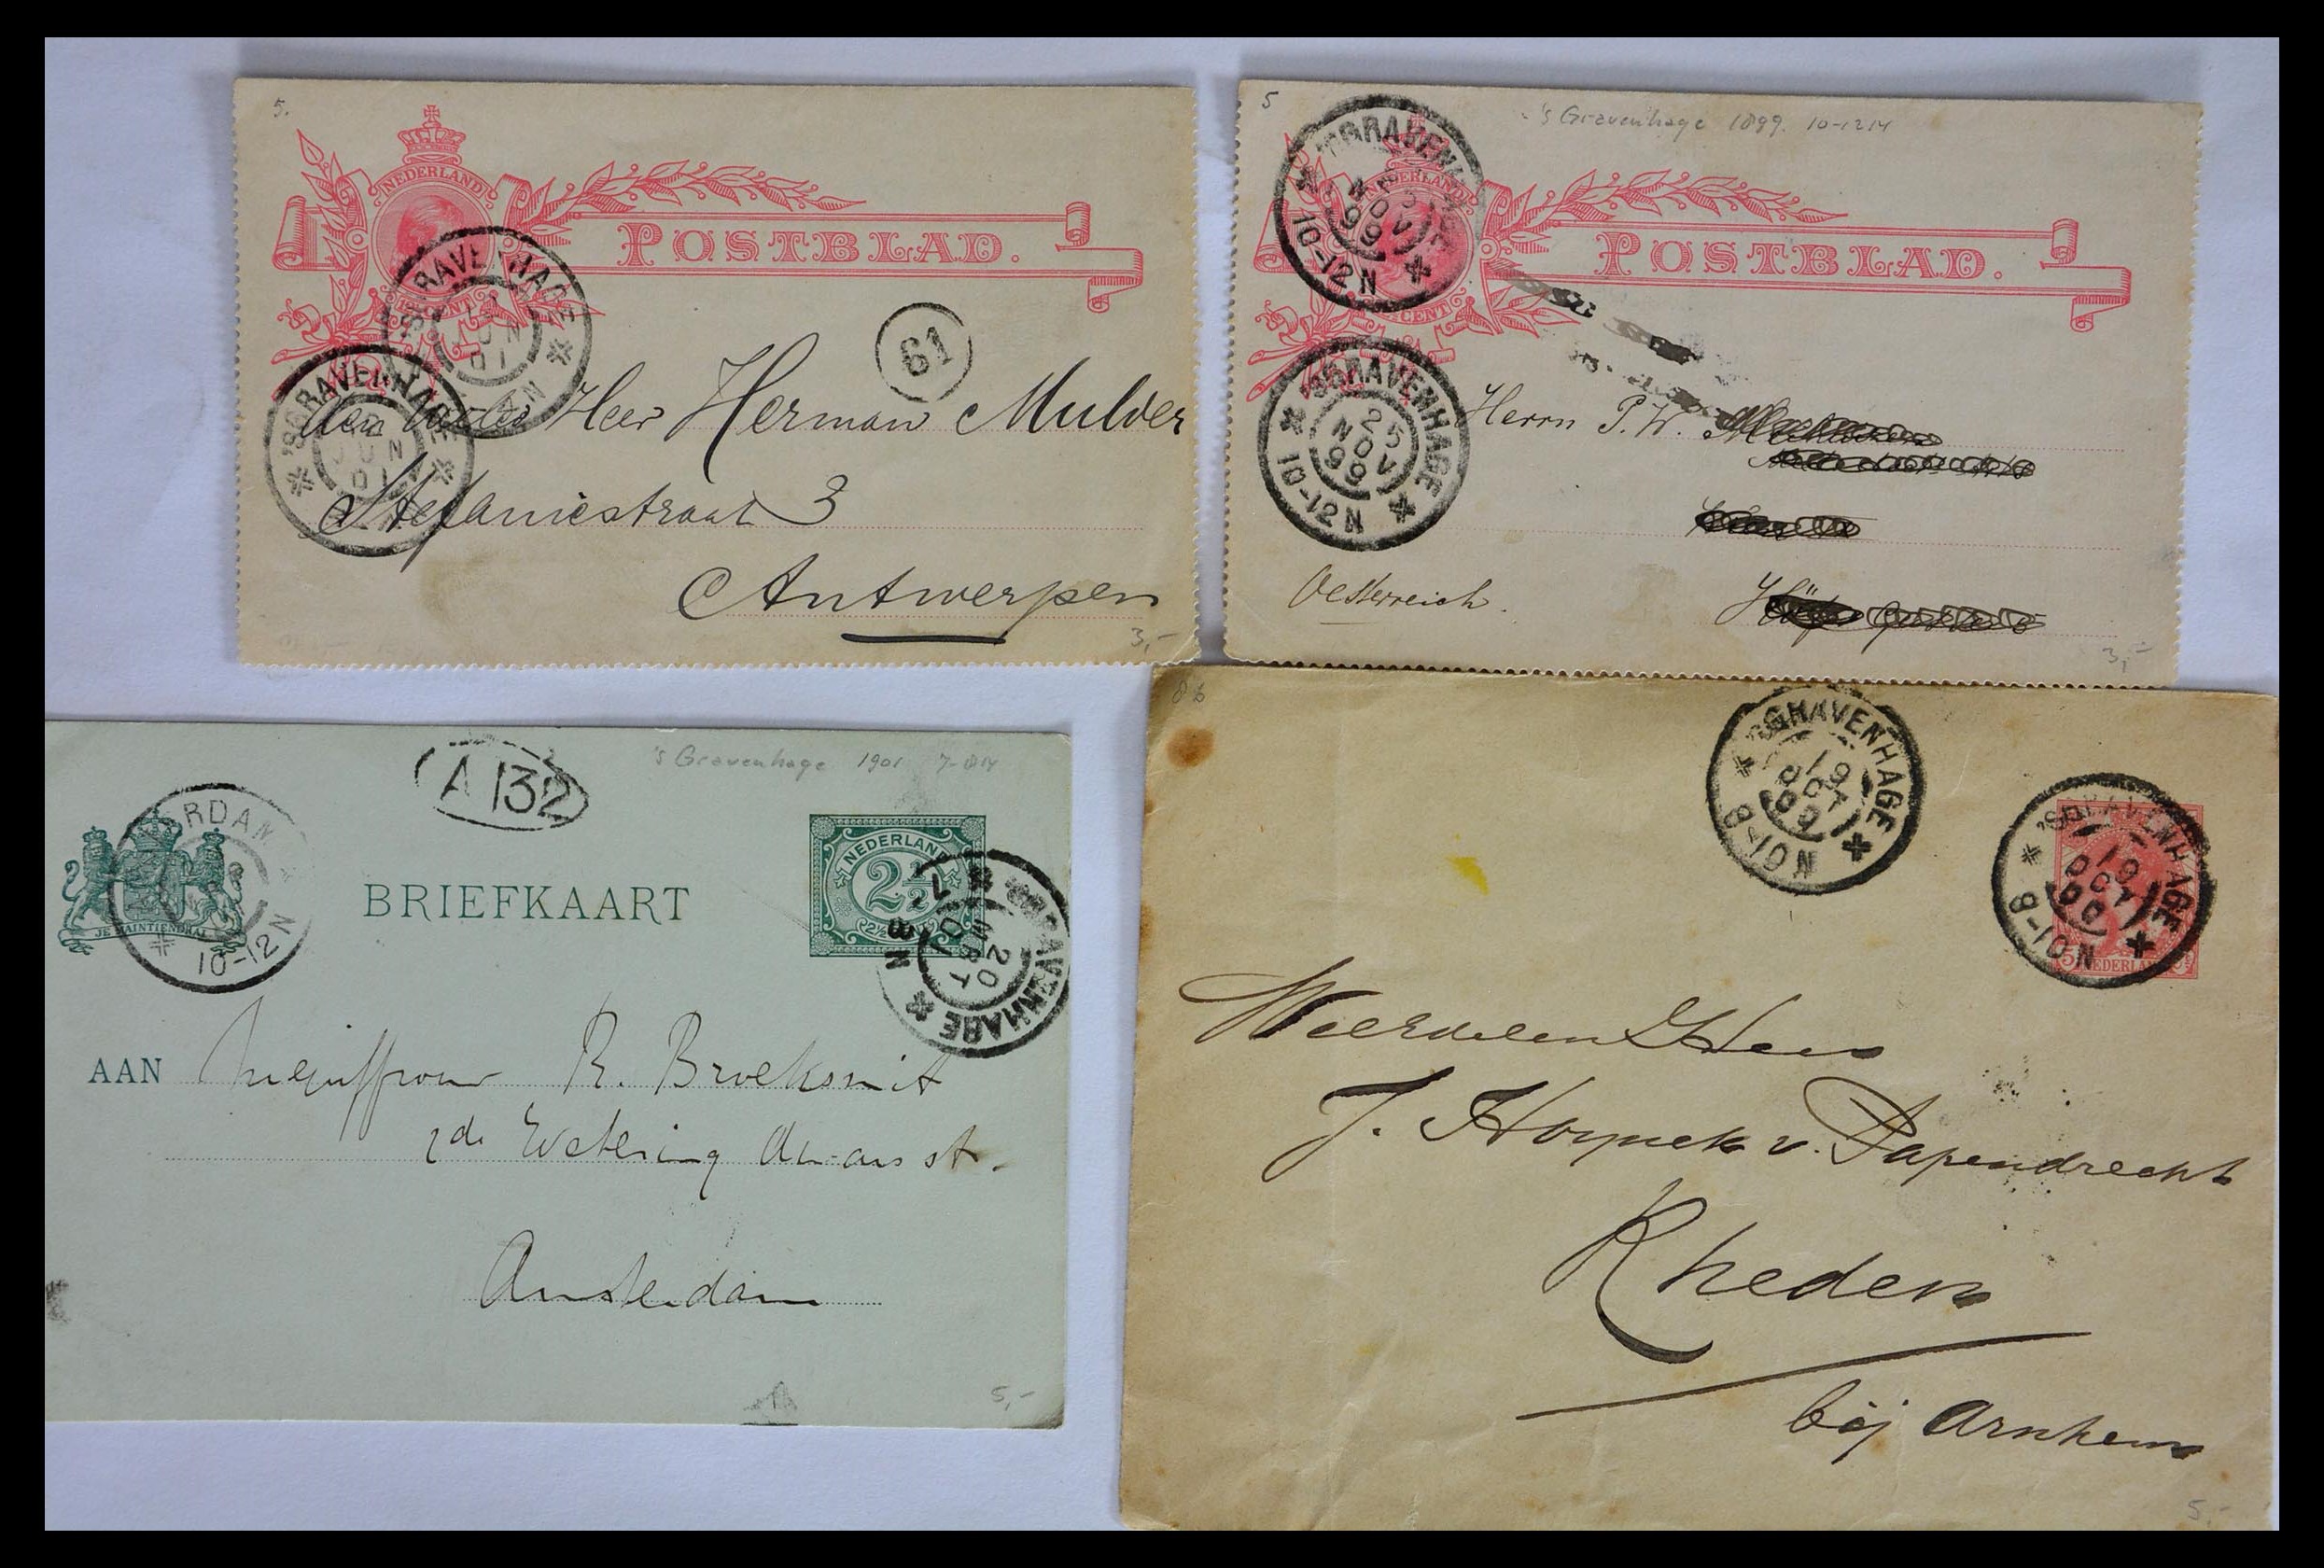 5.
NEDERLAND
POSTBLAD.
'SGRAVENHAGE
JUN
01
'SGRAVENHAGE
12
JUN
01
61
Heer Herman Mulder
Stefaniestraat 3
Antwerpen
3,-
5
's Gravenhage 1899. 10-12 N
'SGRAVENHAGE
NOV
99
10-12 N
NEDERLAND
CENT
POSTBLAD.
'SGRAVENHAGE
25
NOV
99
10-12 N
Herrn P. W.
Oesterreich.
3,-
A 132
's Gravenhage 1901 7-8 N
10-12 N
JE MAINTIENDRAI
BRIEFKAART
NEDERLAND
2½
'SGRAVENHAGE
20
MRT
01
7-8 N
AAN Mejuffrouw R. Broeksmit
2de Wetering dwars st.
Amsterdam
5,-
8b
'SGRAVENHAGE
19
OCT
00
8-10 N
'SGRAVENHAGE
19
OCT
00
8-10 N
NEDERLAND
J. Hoynck v. Papendrecht
Rheden
bij Arnhem
5,-